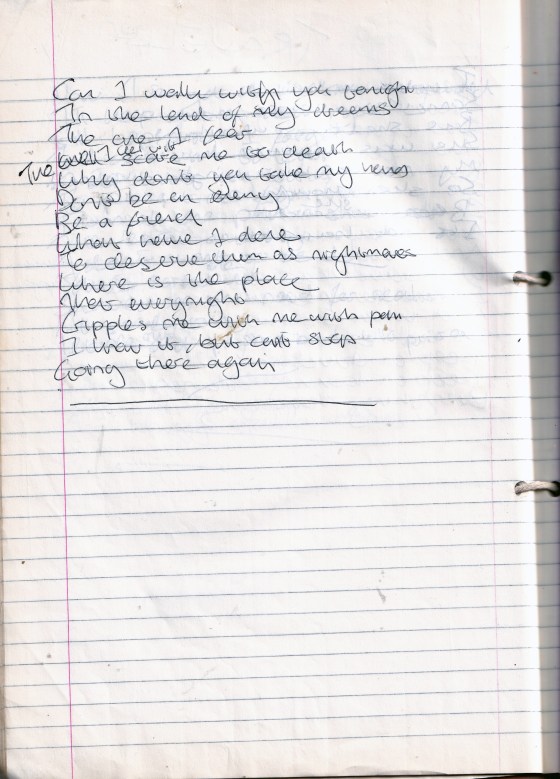 Can I walk with you tonight
In the land of my dreams
The one I fear
The scare me to death
Why don't you take my hand
Don't be an enemy
Be a friend
What have I done
To deserve them as nightmares
Where is the place
That everynight
Cripples me with me with pain
I know it, but can't stop
Going there again